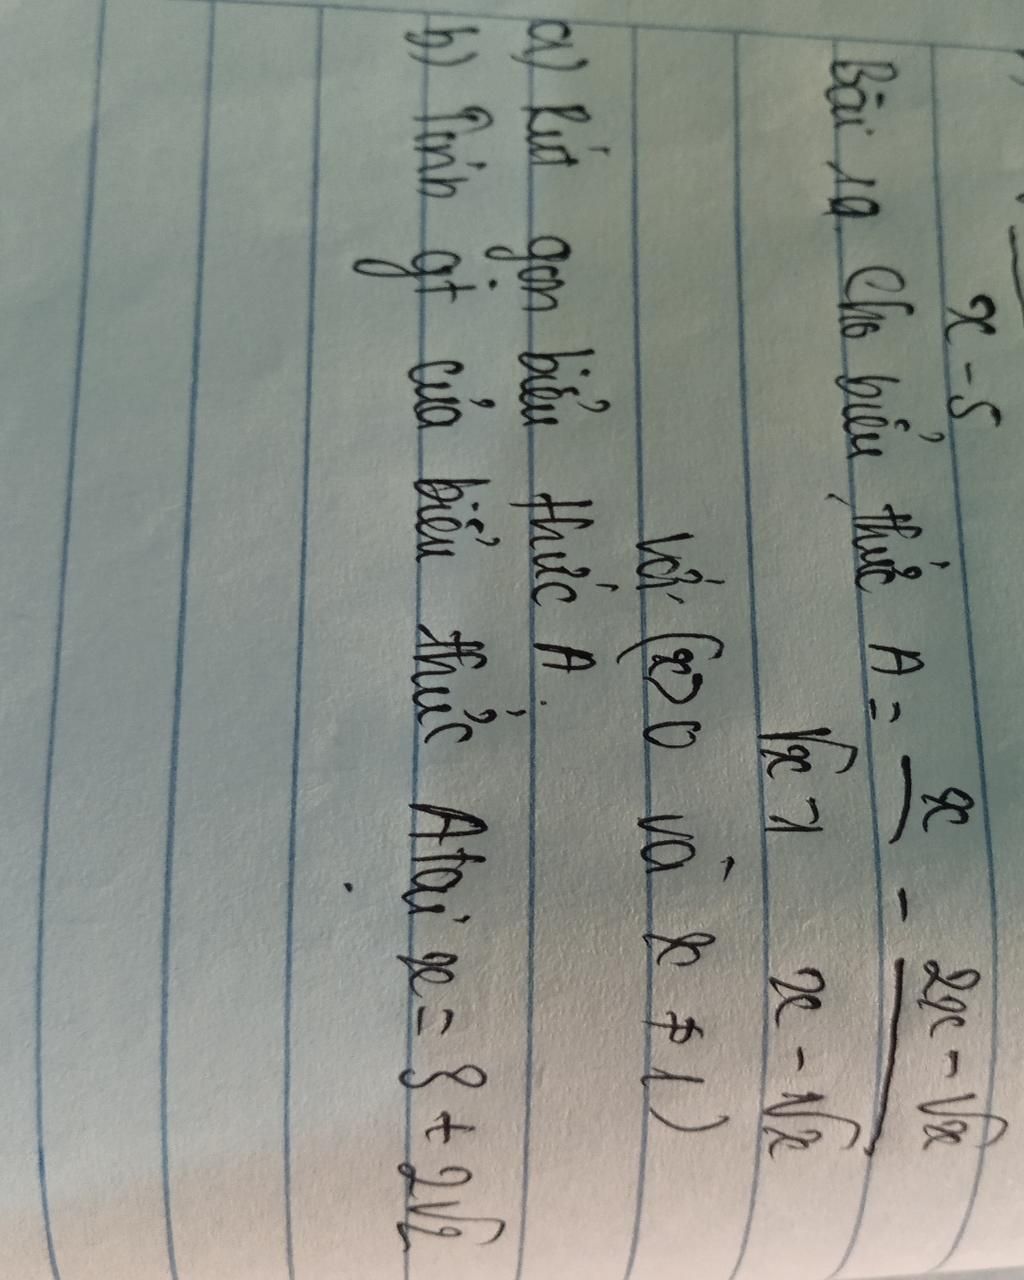 x - 5
Bài 19 Cho biểu thức A = x/(√x - 1) - (2x - √x)/(x - √x)
Với (x > 0 và x ≠ 1)
a) Rút gọn biểu thức A.
b) Tính gt của biểu thức A tại x = 3 + 2√2